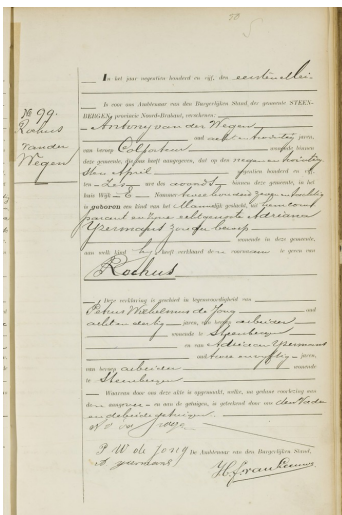 No 99.
Rochus
van der
Wegen
In het jaar negentien honderd en vijf, den eersten Mei
is voor ons Ambtenaar van den Burgerlijken Stand, der gemeente STEEN-
BERGEN, provincie Noord-Brabant, verschenen:
Antony van der Wegen
oud jaren,
van beroep Colporteur wonende binnen
deze gemeente, die ons heeft aangegeven, dat op den negen en twintig
sten April negentien honderd en vijf,
ten zes ure des avonds, binnen deze gemeente, in het
huis Wijk E Nummer twee honderd
is geboren een kind van het Mannelijk geslacht, uit
en zijne echtgenoote Adriana
Ypermans zonder beroep
wonende in deze gemeente,
aan welk kind hij heeft verklaard de voornaam te geven van
Rochus
Deze verklaring is geschied in tegenwoordigheid van
Petrus Wilhelmus de Jong oud
acht en dertig jaren, van beroep arbeider
wonende te Steenbergen
en van Adriaan Ypermans
oud twee en vijftig jaren,
van beroep arbeider wonende
te Steenbergen
Waarvan door ons deze akte is opgemaakt, welke, na gedane voorlezing aan
den aangever en aan de getuigen, is geteekend door ons, den Vader
en de beide getuigen
P W de Jong
A ypermans
De Ambtenaar van den Burgerlijken Stand,